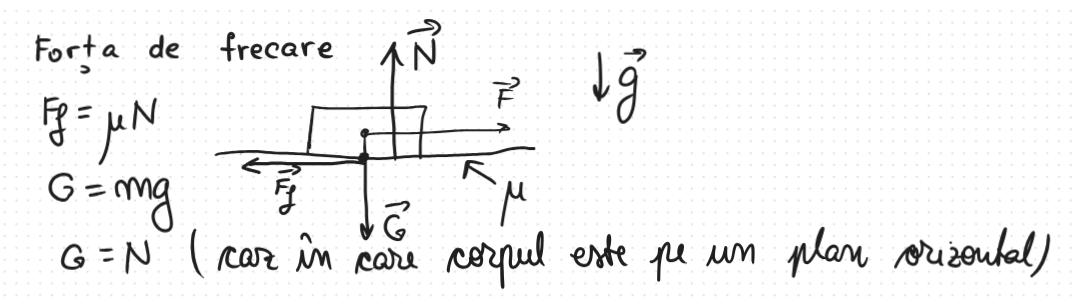 Forța de frecare
N
g
F
Ff = μN
G = mg
Ff
μ
G
G = N ( caz în care corpul este pe un plan orizontal)